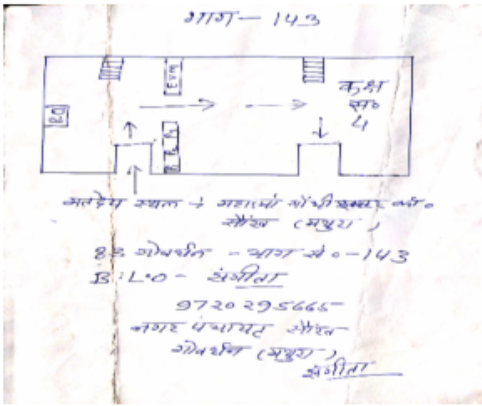 भाग - 143
EVM
कक्ष
स०
4
P.O
P₁ P₂ P₃
मतदेय स्थल ÷ महात्मा गाँधी इण्टर कॉ०
सौंख (मथुरा)
83 गोवर्धन - भाग सं० - 143
B.L.O - संगीता
9720295665
नगर पंचायत सौंख
गोवर्धन (मथुरा)
संगीता